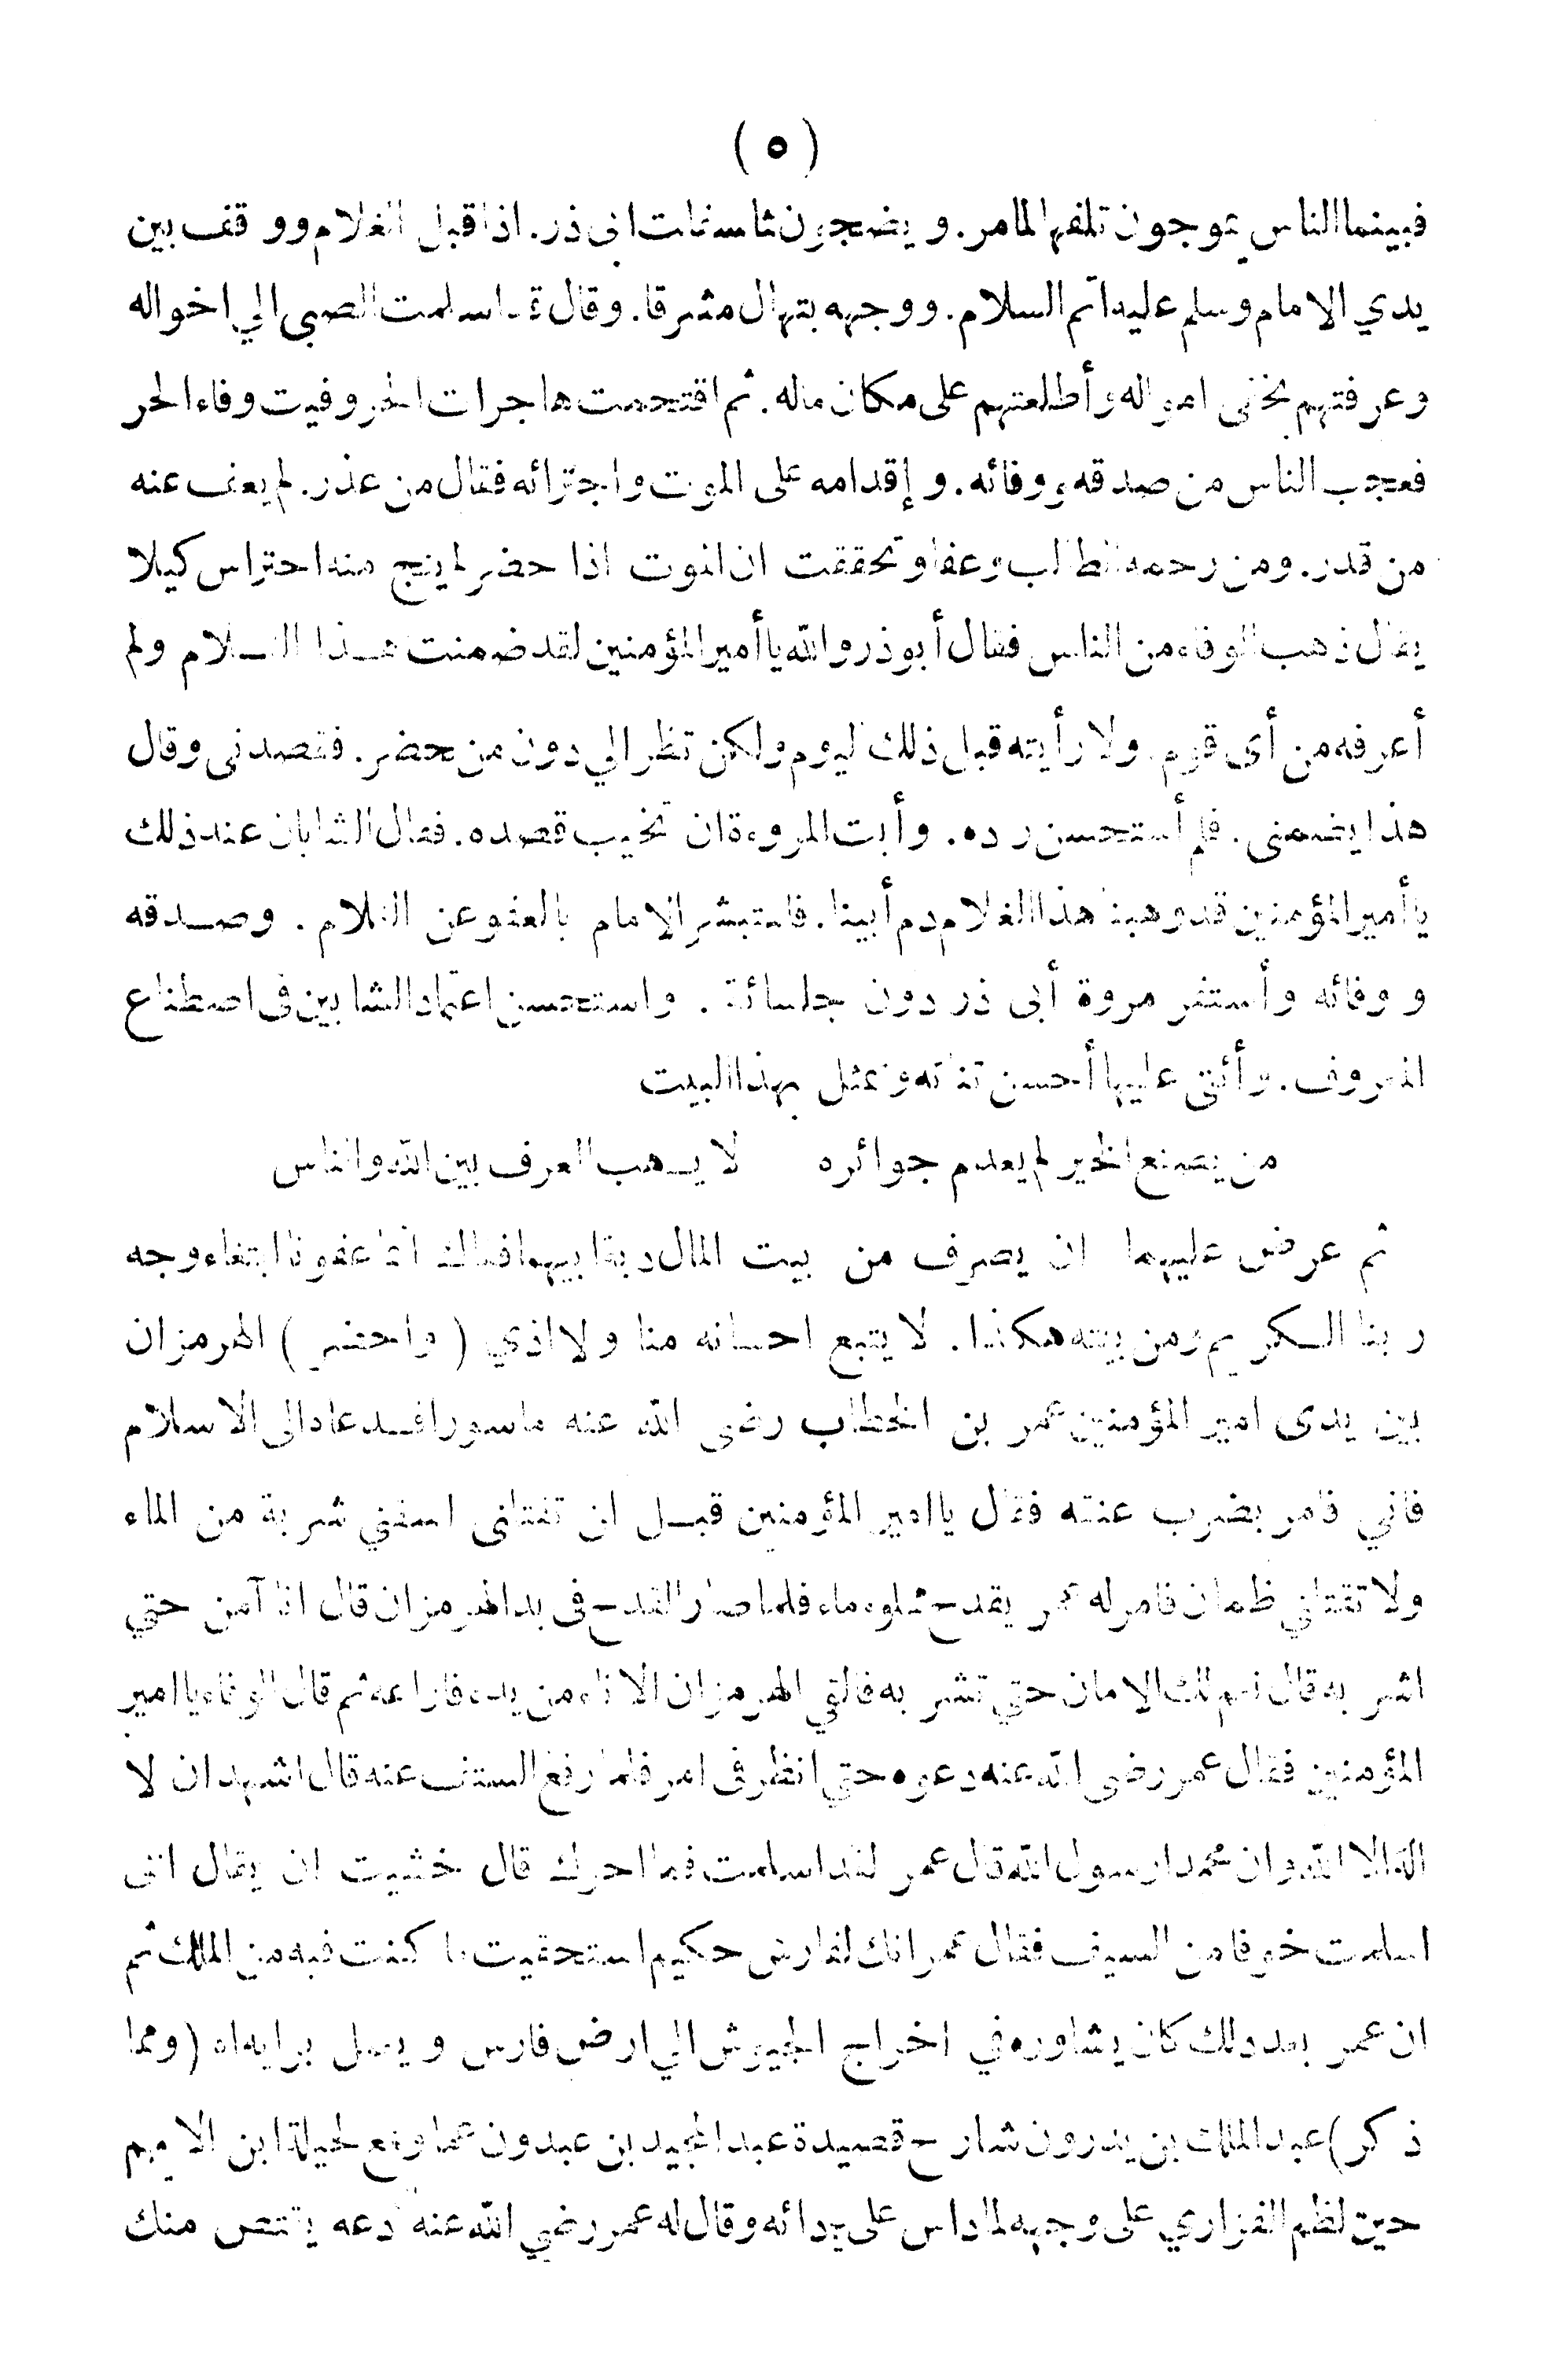 ( ٥ )
فبينما الناس يموجون تلفها لمامر. و يضجون ثاسفات ابى ذر. اذا قبل الغلام وو قف بين
يدي الامام وسلم عليه أتم السلام. ووجهه يتهلل مشرقا. وقال قد اسلمت الصبى الي اخواله
وعرفتهم بخفى امواله وأطلعتهم على مكان ماله. ثم اقتحمت هاجرات الحر وفيت وفاء الحر
فعجب الناس من صدقه ووفائه. و إقدامه على الموت واجترائه فقال من غذر. لم يعف عنه
من قدر. ومن رحمه الطالب وعفا وتحققت ان الموت اذا حضر لم ينج منه احتراس كيلا
يقال ذهب الوفاء من الناس فقال أبوذر والله ياأمير المؤمنين لقد ضمنت هـذا الغـلام ولم
أعرفه من أى قوم. ولا رأيته قبل ذلك اليوم ولكن نظر الي دون من حضر. فقصدنى وقال
هذا يضمنى. فلم أستحسن رده. وأبت المروءة ان تخيب قصده. فقال الشابان عند ذلك
ياأمير المؤمنين قد وهبنا هذا الغلام دم أبينا. فاستبشر الامام بالعفو عن الغلام. وصـدقه
و وفائه وأستغر مروة أبى ذر دون جلسائة. واستحسن اعتماد الشابين فى اصطناع
المعروف. وأثنى عليها أحسن ثنائه وتمثل بهذا البيت
من يصنع الخير لم يعدم جوائزه لا يـذهب العرف بين الله والناس
ثم عرض عليهما ان يصرف من بيت المال دية ابيهما فقالا انما عفونا ابتغاء وجه
ربنا الـكريم ومن نيته هكذا. لا يتبع احسانه منا ولا اذي ( واحضر ) الهرمزان
بين يدى امير المؤمنين عمر بن الخطاب رضى الله عنه ماسورا فـدعاه الى الاسلام
فابي فامر بضرب عنقه فقال ياامير المؤمنين قبـل ان تقتلنى اسقني شربة من الماء
ولا تقتلني ظمان فامر له عمر بقدح مملوء ماء فلما صار القدح فى يد الهرمزان قال انا آمن حتي
اشربه قال نعم لك الامان حتي تشربه فالقي الهرمزان الاناء من يده فاراقه ثم قال الوفاء ياامير
المؤمنين فقال عمر رضى الله عنه دعوه حتي انظر فى امره فلما رفع السيف عنه قال اشهد ان لا
اله الا الله وان محمدا رسول الله قال عمر لقد اسلمت فما اخرك قال خشيت ان يقال انى
اسلمت خوفا من السيف فقال عمر انك لفارس حكيم استحقيت ما كنت فيه من الملك ثم
ان عمر بعد ذلك كان يشاوره في اخراج الجيوش الي ارض فارس و يعمل برايه اه (ومما
ذكر) عبد الملك بن بدرون شارح قصيدة عبد المجيد بن عبدون مما وقع لجبلة ابن الايهم
حين لطم الفزاري على وجهه لما داس على ردائه وقال له عمر رضي الله عنه دعه يقتص منك